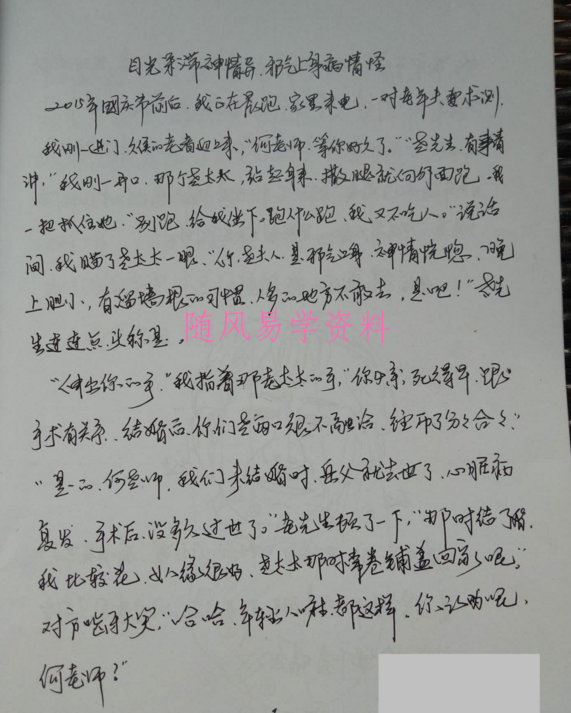 目光呆滞神情异、邪气上身病情怪
2015年国庆节前后，我正在晨跑，家里来电，一对老年夫妻求测.
我刚一进门，久候的老者迎上来，“何老师，等你好久了。”“老先生，有事请
讲，”我刚一开口，那个老太太，站起身来，撒腿就向外面跑，我
一把抓住她，“别跑，给我坐下。跑什么跑，我又不吃人。”说话
间，我瞄了老太太一眼，“你，老夫人，是邪气上身，神情恍惚，晚
上胆小，有溜墙根的习惯，人多的地方不敢去，是吧！”老先
生连连点头称是。
随风易学资料
“伸出你的手，”我指着那老太太的手，“你父亲，死得早，跟
手术有关系，结婚后，你们老两口很不融洽，经历了分分合合。”
“是的，何老师，我们未结婚时，岳父就去世了，心脏病
复发，手术后，没多久过世了。”老先生顿了一下，“那时结了婚，
我比较花，女人缘很好，老太太那时常卷铺盖回家呢，”
对方咧开大笑，“哈哈，年轻人嘛，都这样，你说呢，
何老师？”